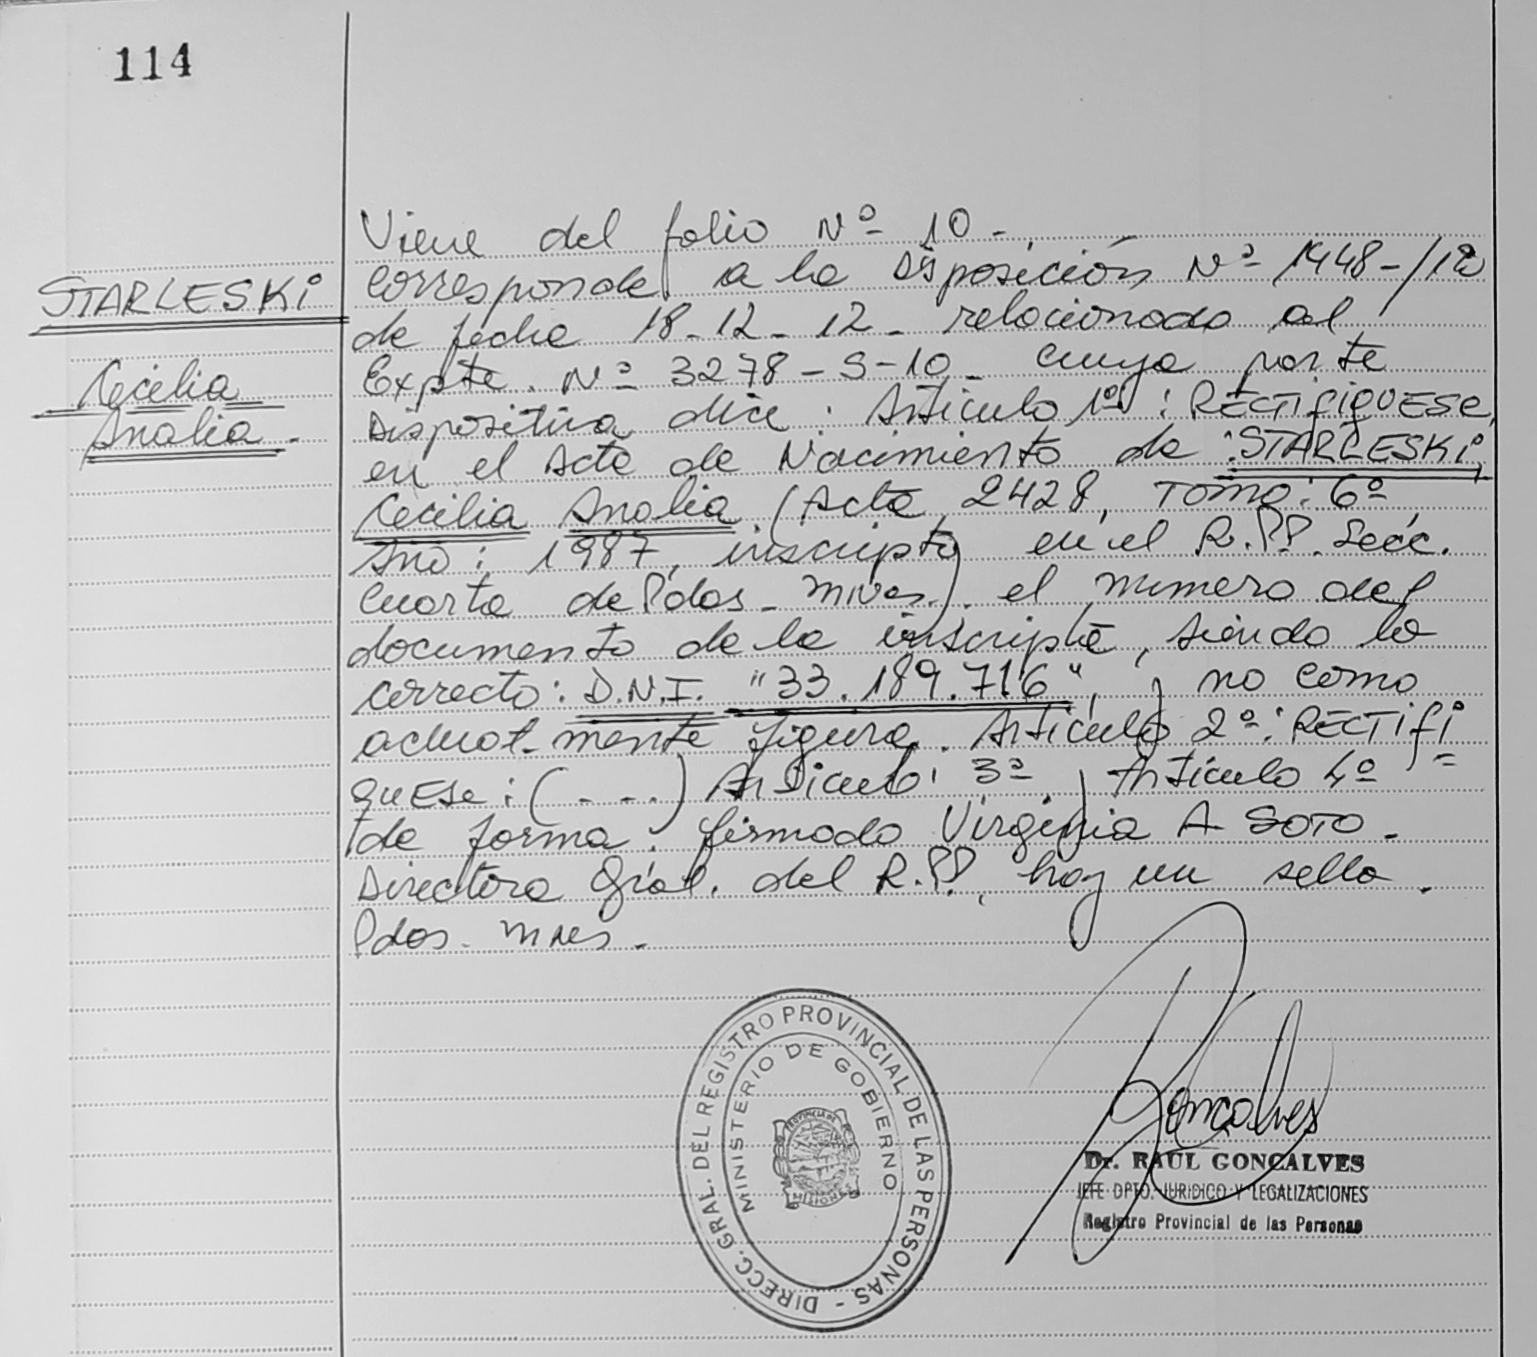 114
STARLESKI
Cecilia
Analia.
Viene del folio Nº 10 -
Corresponde a la Disposición Nº 1948-/12
de fecha 18-12-12- relacionado al
Expte. Nº 3278-S-10- cuya parte
Dispositiva dice: Artículo 1º: RECTIFIQUESE,
en el Acta de Nacimiento de: STARLESKI,
Cecilia Analia (Acta 2428, Tomo: 6º
Año: 1987, inscripta en el R.P.P. Secc.
Cuarta de Pdos - Mnes). el número del
documento de la inscripta, siendo lo
correcto: D.N.I. "33.189.716", y no como
actual-mente figura. Artículo 2º: RECTIFI
QUESE: (---) Artículo: 3º y Artículo 4º
de forma. firmado Virginia A SOTO -
Directora Gral. del R.P.P., hay un sello.
Pdos. Mnes.
DIRECC. GRAL. DEL REGISTRO PROVINCIAL DE LAS PERSONAS -
MINISTERIO DE GOBIERNO
PROVINCIA DE
MISIONES
Goncalves
Dr. RAUL GONCALVES
JEFE DPTO. JURIDICO Y LEGALIZACIONES
Registro Provincial de las Personas